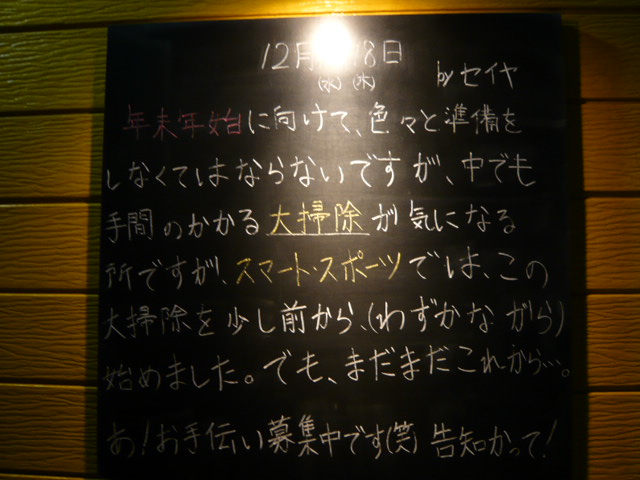 12月 8日
(水)(木)
byセイヤ
年末年始に向けて、色々と準備を
しなくてはならないですが、中でも
手間のかかる大掃除が気になる
所ですが、スマート・スポーツでは、この
大掃除を少し前から、(わずかながら)
始めました。でも、まだまだこれから…。
あ!お手伝い募集中です(笑)告知かって!